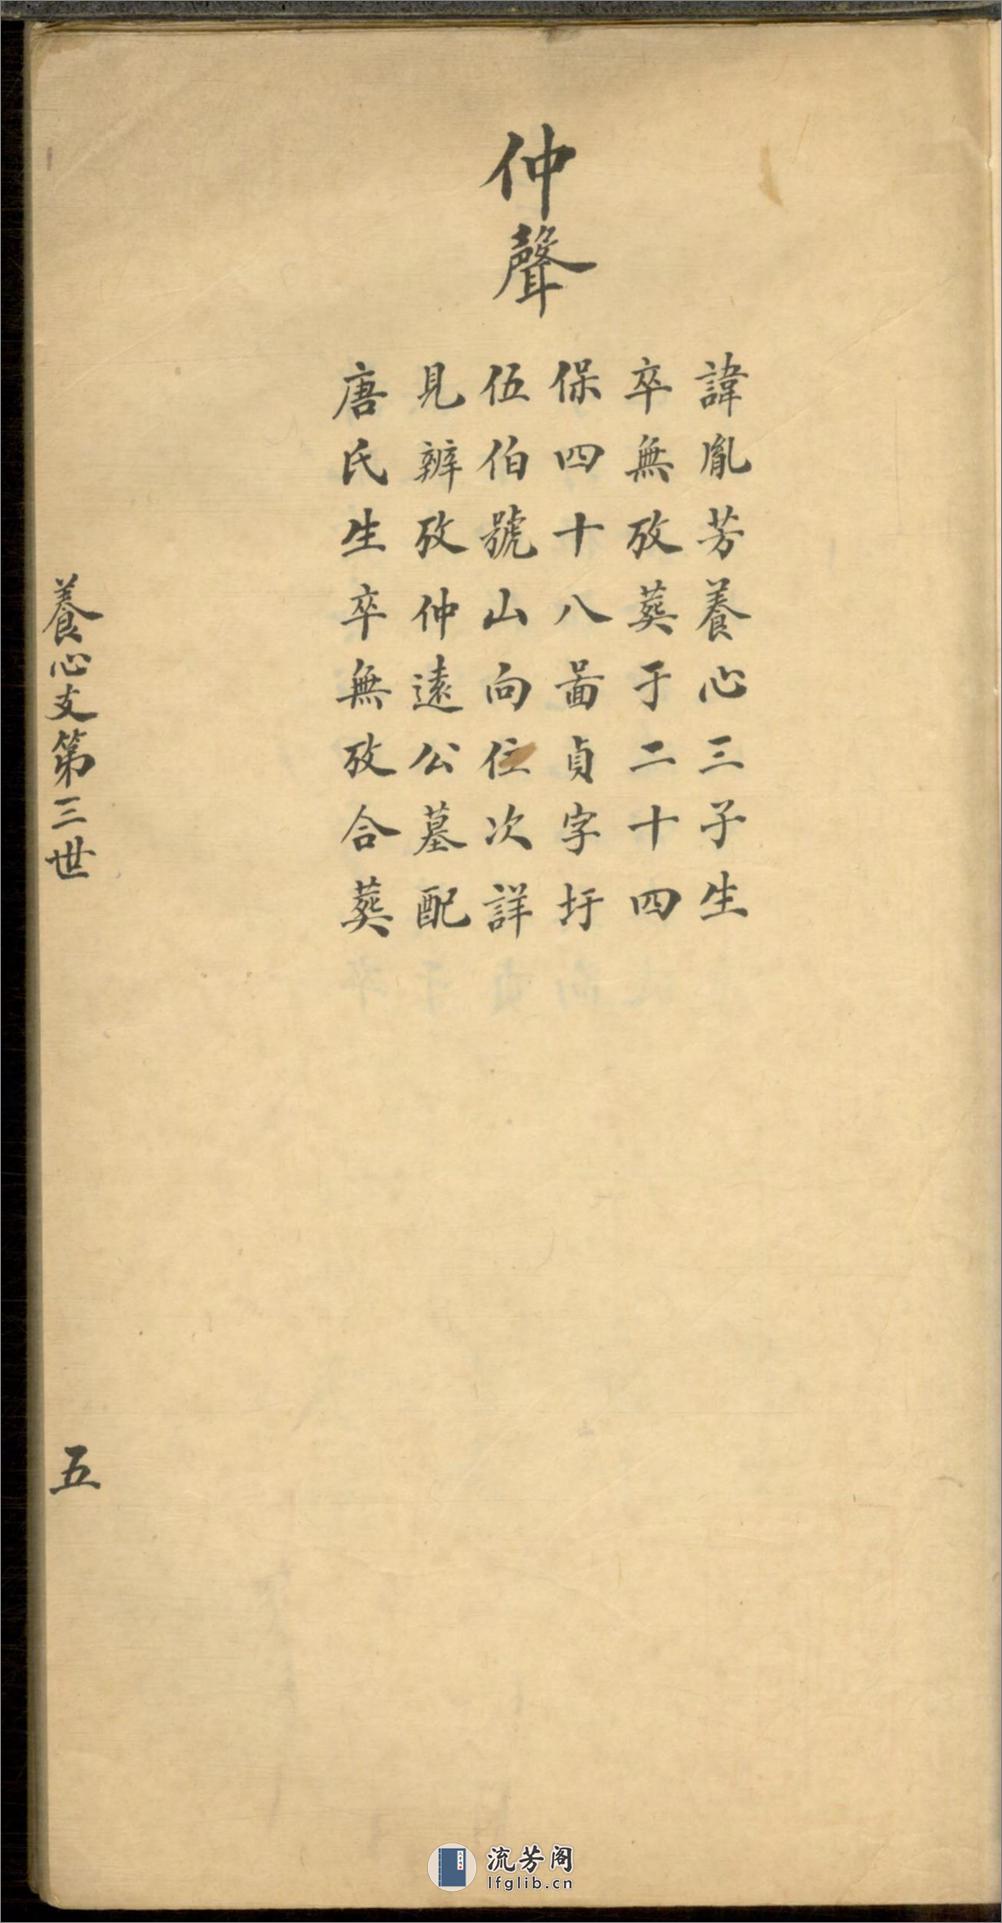 仲聲
諱胤芳養心三子生
卒無攷葬于二十四
保四十八啚貞字圩
伍伯號山向位次詳
見辨攷仲遠公墓配
唐氏生卒無攷合葬
養心支第三世
五
流芳阁
lfglib.cn